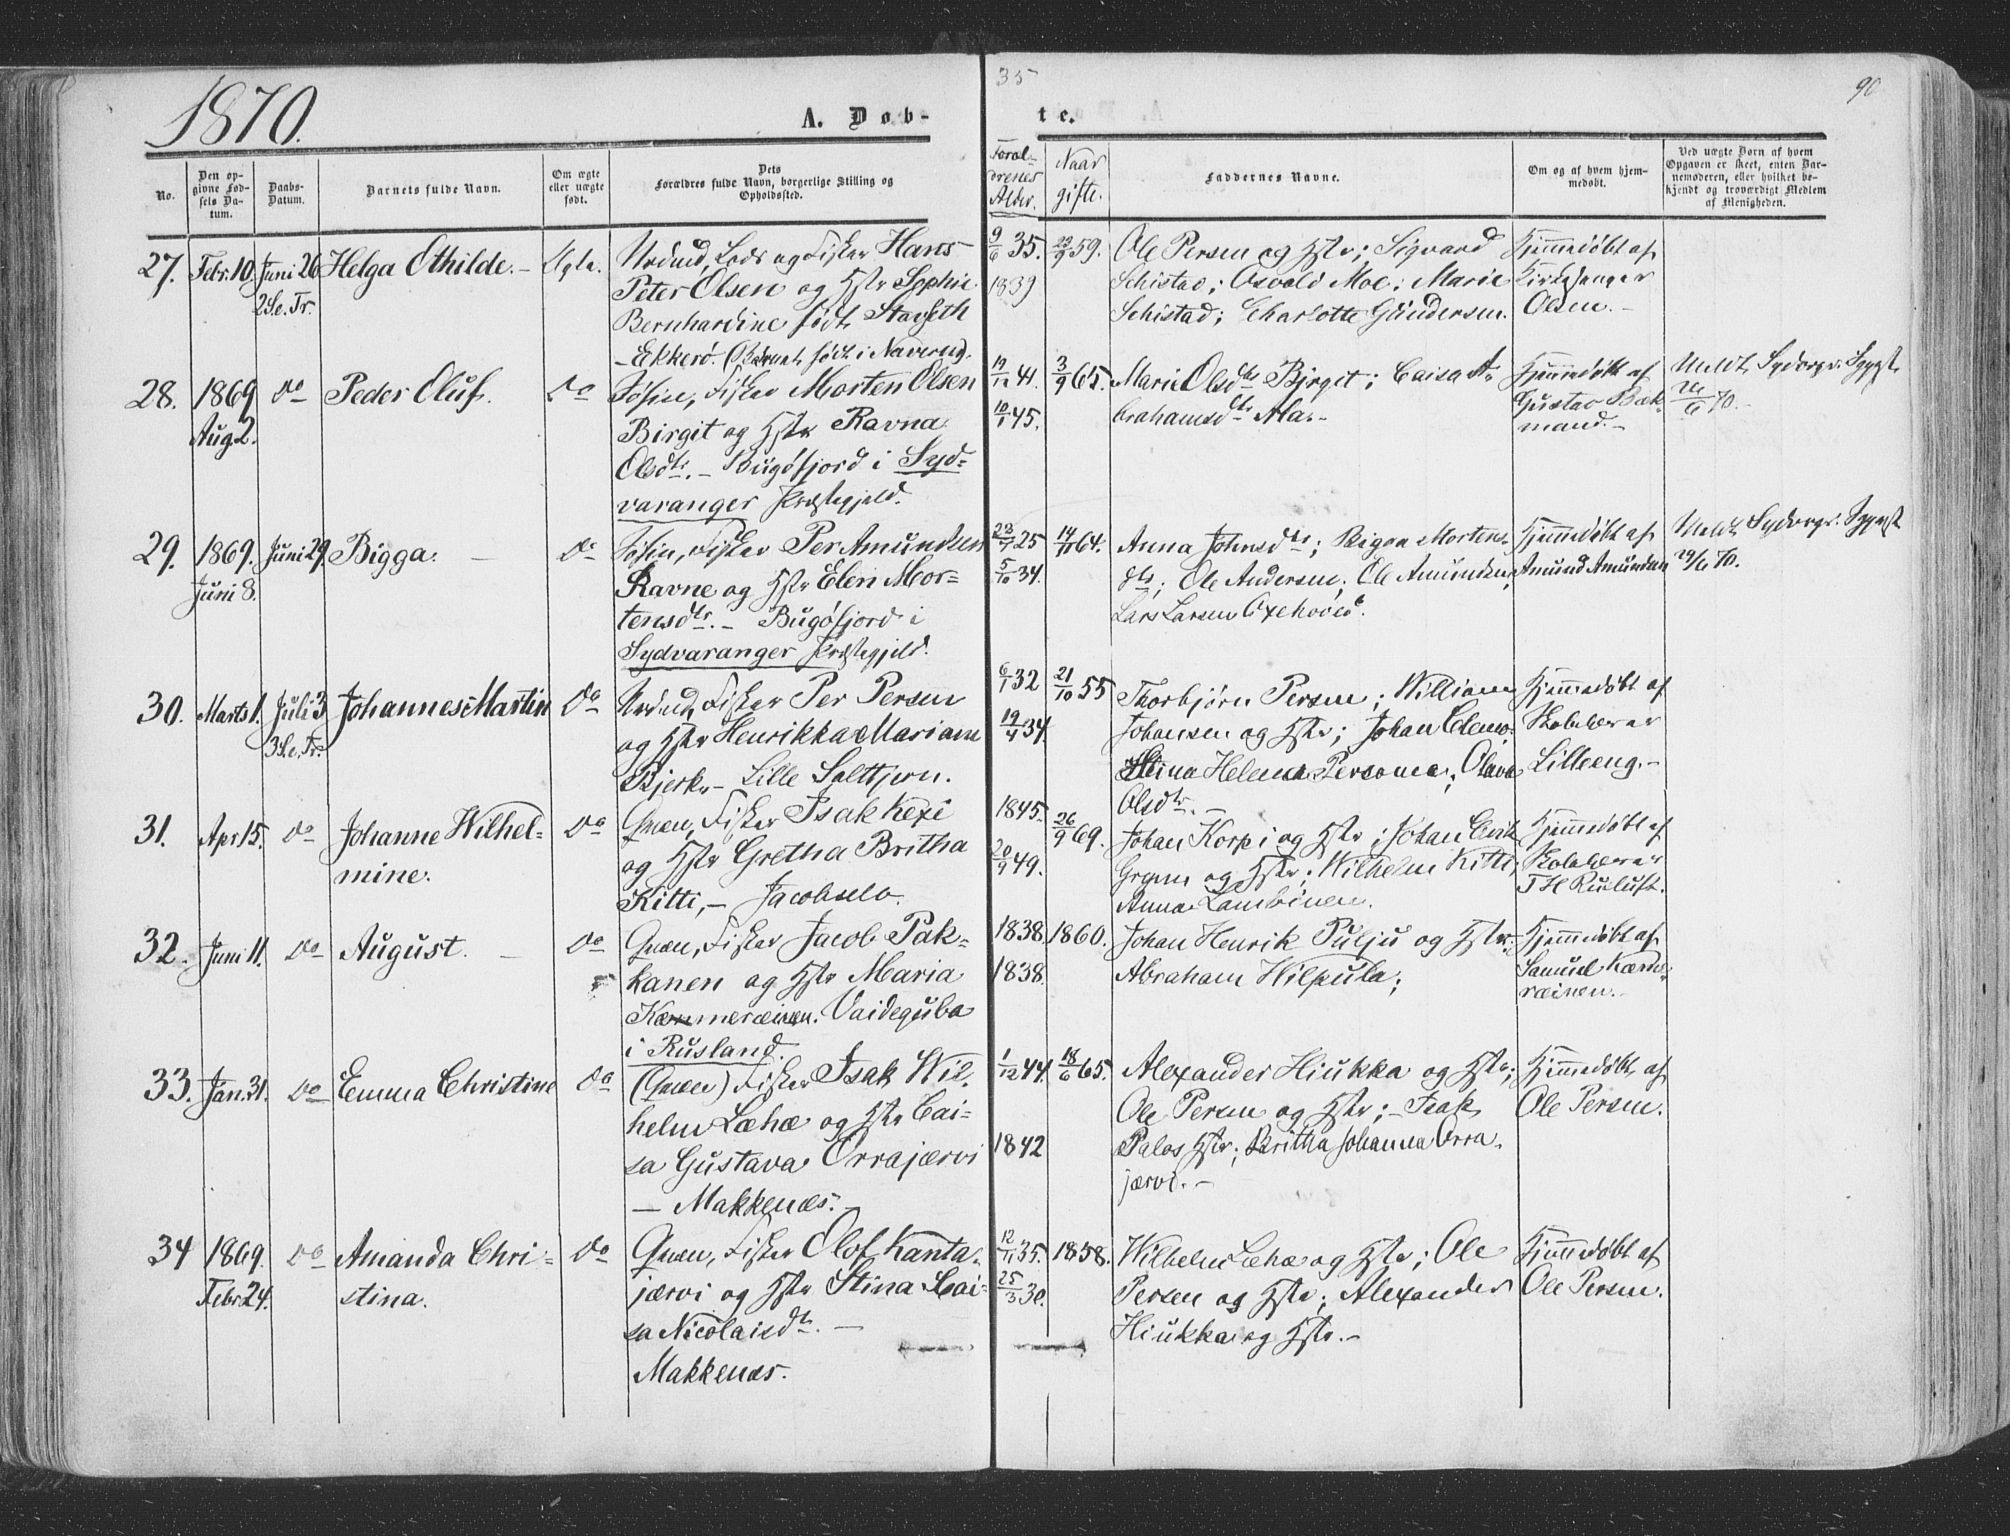 1870.
A. Døb-
35
te.
90
No.
Den op-
givne Fød-
sels Da-
tum.
Daabs-
Datum.
Barnets fulde Navn.
Om ægte
eller uægte
født.
Dets
Forældres fulde Navn, borgerlige Stilling og
Opholdssted.
Foræl-
drenes
Alder.
Naar
gifte.
Faddernes Navne.
Om og af hvem hjem-
medøbt.
Ved uægte Børn af hvem
Opgaven er skeet, enten Bar-
nemoderen, eller hvilket be-
kjendt og troværdigt Medlem
af Menigheden.
27. Febr. 10. Juni 26 Helga Othilde. - Ægte.
2 S. e. Tr.
Nrdmd, Lods og Fisker Hans
Peter Olsen og Hstr Sophie
Bernhardine født Stavseth
- Ekkerø. (Barnet født i
9/6 35.
1839
23/9 59.
Ole Persen og Hstr; Sigvard
Schistad; Osvald Moe; Marie
Schistad; Charlotte Gundersen.
Hjemmedøbt af
Kirkesanger
Olsen. -
28. 1869 do Peder Oluf. do
Aug 2.
Fisker Morten Olsen
Birgit og Hstr Ravna
Olsdtr. - Bugøfjord i Syd-
varanger Præstegjeld.
19/12 41.
10/1 45.
3/9 65.
Marie Olsdtr Birget; Caisa A-
brahamsdtr Ala. -
Hjemmedøbt af
Gustav Bek-
mand. -
Meldt Sydvrgr. Sgprst
/6 70. -
29. 1869. Juni 29. Bigga. - do
Juni 8.
Fisker Per Amundsen
Ravne og Hstr Elen Mor-
tensdtr. - Bugøfjord i
Sydvaranger Præstegjeld.
23/7 25
5/10 34.
14/11 64.
Anna Johnsdtr; Bigga Mortens-
dtr; Ole Andersen; Ole Amundsen;
Lars Larsen
Hjemmedøbt af
Amund Amundsen
Meldt Sydvrgr. Sgprst
29/6 70.
30. Marts 1. Juli 3 Johannes Martin do
3 S. e. Tr.
Nrdmd, Fisker Per Persen
og Hstr Henrikka Mariane
Bjerk - Lille Saltjern.
6/1 32
19/4 34.
21/10 55
Thorbjørn Persen; William
Johansen og Hstr; Johan Clemo
Stina Helena Persome; Olava
Olsdtr. -
Hjemmedøbt af
Skolelærer
Lilleeng. -
31. Apr 15. do Johanne Wilhel-
mine. do
Qvæn, Fisker Isak Kexi
og Hstr Gretha Britha
Kitti, - Jacobselv.
1845.
20/9 49.
26/9 69.
Johan Korpi og Hstr; Johan Erik
og Hstr; Wilhelm Kitti;
Anna Lambinen.
Hjemmedøbt af
Skolelærer
T H Ruluft.
32. Juni 11. do August. - do
Qvæn, Fisker Jacob Pak-
kanen og Hstr Maria
Kæmmeræinen. Vaideguba
i Rusland.
1838
1838.
1860.
Johan Henrik Puljü og Hstr;
Abraham Hilpula;
Hjemmedøbt af
Samuel Kæme-
ræinen. -
33. Jan. 31. do Emma Christine do
(Qvæn) Fisker Isak Wil-
helm Læhæ og Hstr Cai-
sa Gustava Orrajærvi
- Makkenæs. -
1/12 44.
1842
18/6 65.
Alexander Hiukka og Hstr;
Ole Persen og Hstr; - Isak
Palos Hstr; Britha Johanna Orra-
jærvi. -
Hjemmedøbt af
Ole Persen.
34 1869. do Amanda Chri-
stina. do
Febr. 24.
Qvæn, Fisker Olof Kanta-
jærvi og Hstr Stina Cai-
sa Nicolaisdtr. -
Makkenæs.
12/11 35.
25/3 30.
1858.
Wilhelm Læhæ og Hstr; Ole
Persen og Hstr; Alexander
Hiukka og Hstr. -
Hjemmedøbt af
Ole Persen.